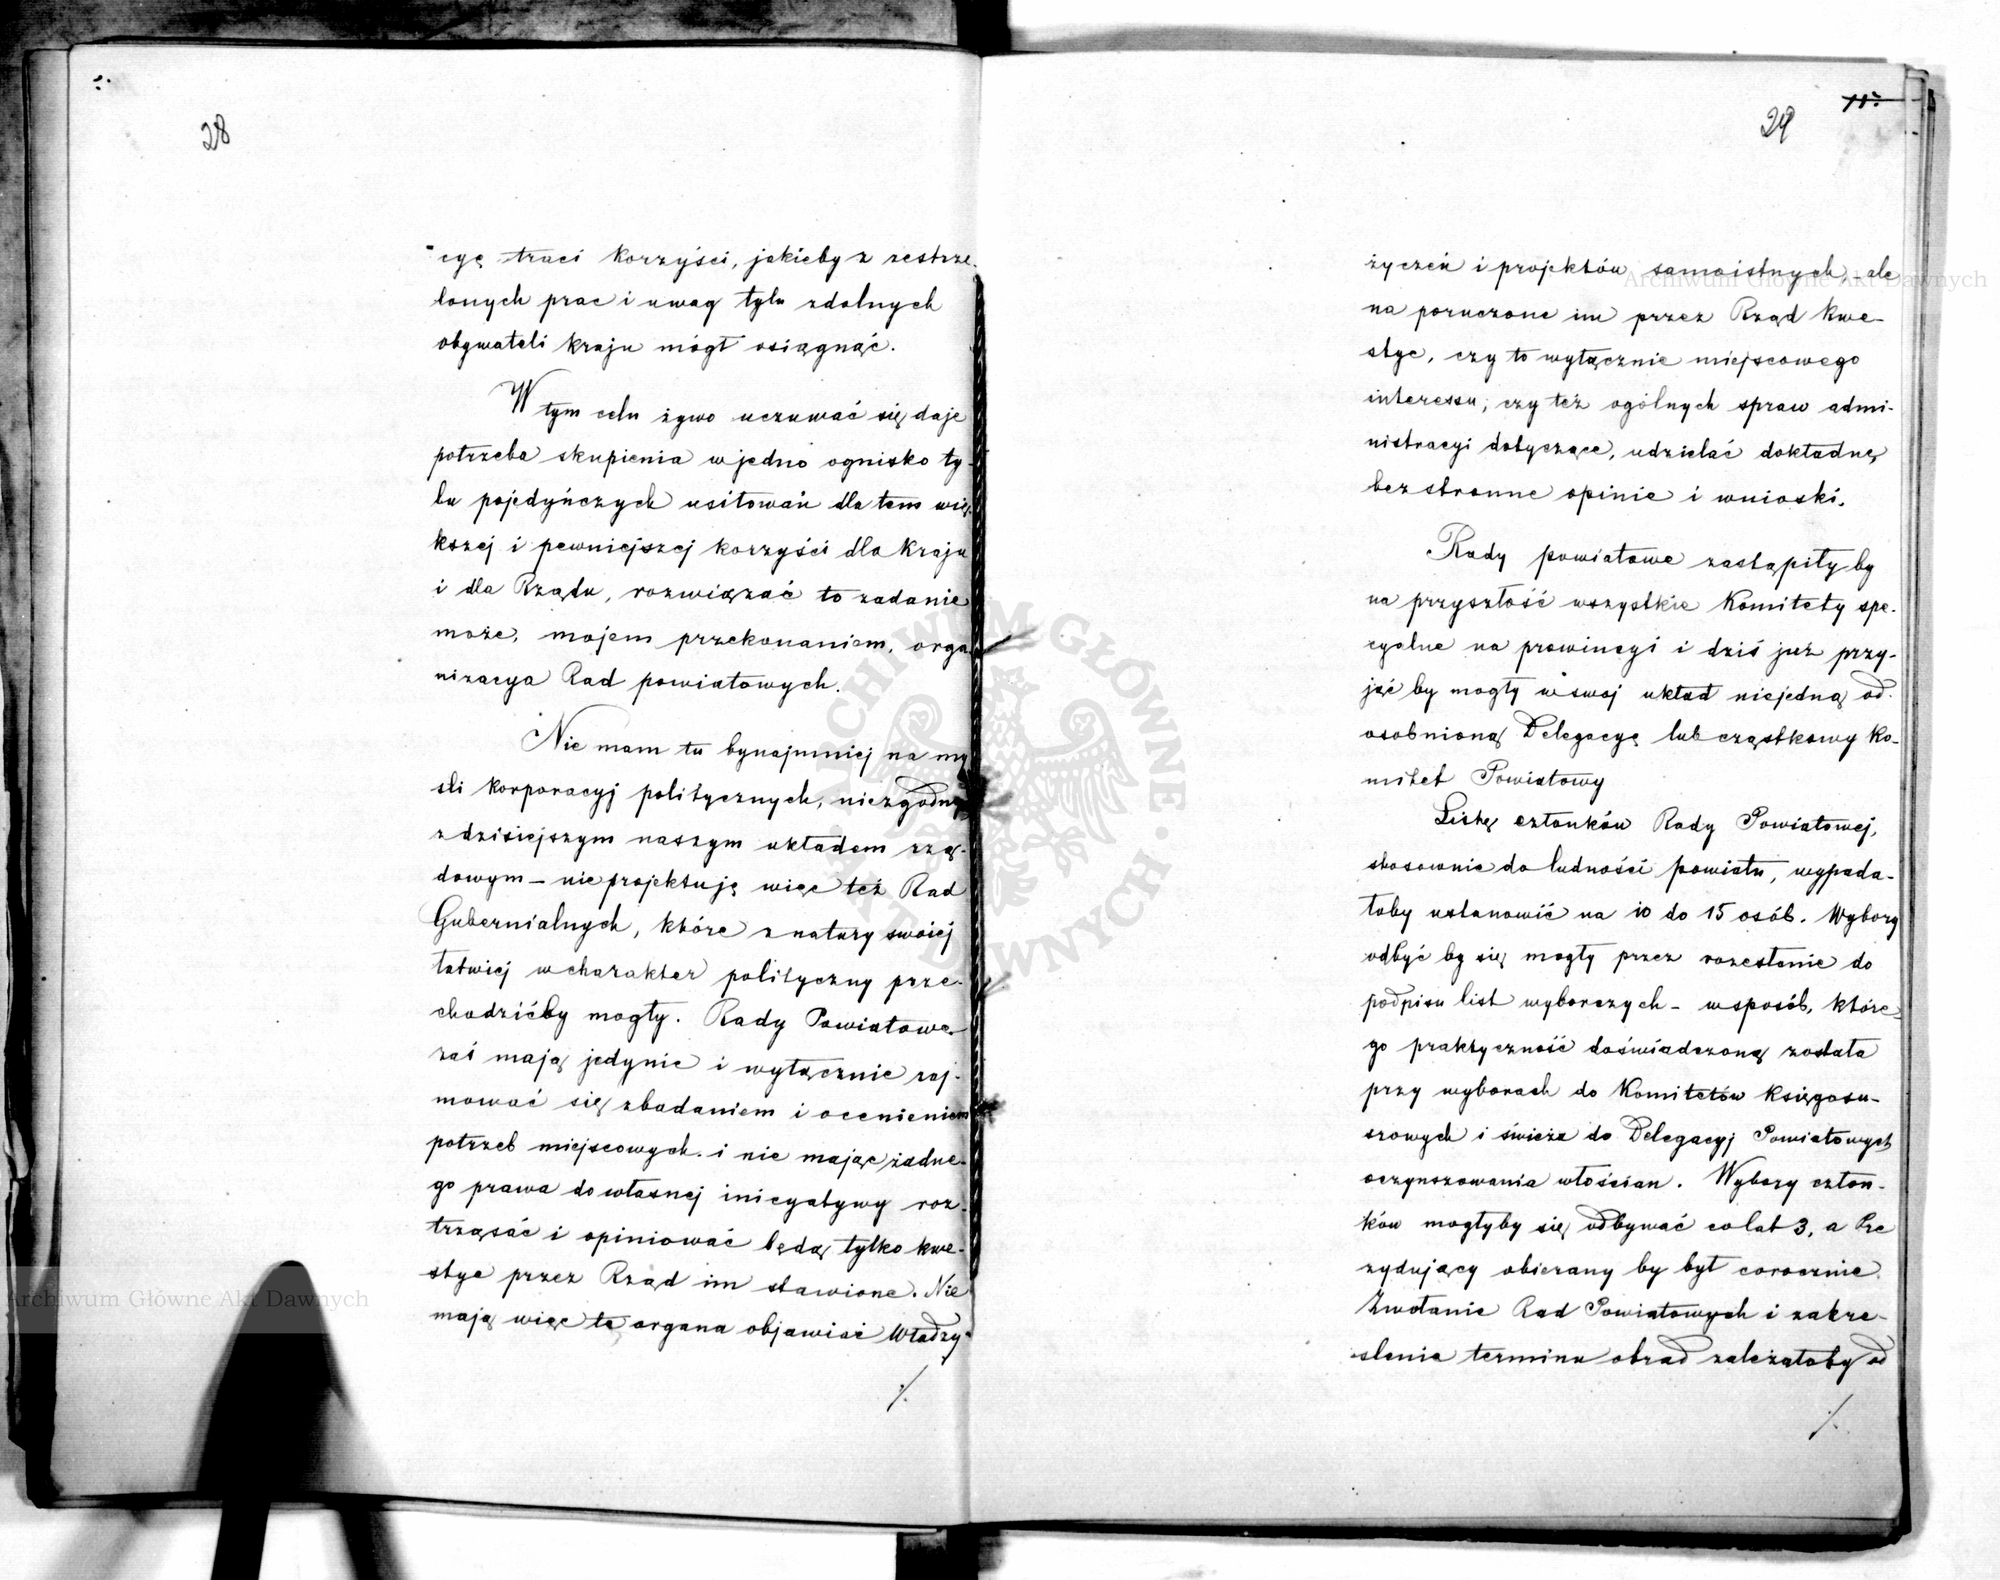 28
cyę traci korzyści, jakieby z zestrze-
lonych prac i uwag tylu zdolnych
obywateli kraju mógł osiągnąć.
W tym celu żywo uczuwać się daje
potrzeba skupienia w jedno ognisko ty-
lu pojedyńczych usiłowań dla tem wię-
kszej i pewniejszej korzyści dla kraju
i dla Rządu, rozwiązać to zadanie
może, mojem przekonaniem, orga-
nizacya Rad powiatowych.
Nie mam tu bynajmniej na my
śli korporacyj politycznych, niezgodnych
z dzisiejszym naszym układem rzą-
dowym – nie projektuję więc też Rad
Gubernialnych, które z natury swojej
łatwiej w charakter polityczny prze-
chodzićby mogły. Rady Powiatowe
zaś mają jedynie i wyłącznie zaj-
mować się zbadaniem i ocenieniem
potrzeb miejscowych i nie mając żadne-
go prawa do własnej inicyatywy roz-
trząsać i opiniować będą tylko kwe-
stye przez Rząd im stawione. Nie
mają więc te organa objawiać Władzy
./.
29
życzeń i projektów samoistnych, ale
na poruczone im przez Rząd kwe-
stye, czy to wyłącznie miejscowego
interessu, czy też ogólnych spraw admi-
nistracyi dotyczące, udzielać dokładne,
bezstronne opinie i wnioski.
Rady powiatowe zastąpiły by
na przyszłość wszystkie Komitety spe-
cyalne na prowincyi i dziś już przy-
jąć by mogły w swoj układ niejedną od-
osobnioną Delegacyę lub cząstkowy Ko-
mitet Powiatowy
Listę członków Rady Powiatowej,
stosownie do ludności powiatu, wypada-
łoby ustanowić na 10 do 15 osób. Wybory
odbyć by się mogły przez rozesłanie do
podpisu list wyborczych – w sposób, które-
go praktyczność doświadczoną została
przy wyborach do Komitetów księgosu-
szowych i świeżo do Delegacyj Powiatowych
oczynszowania włościan. Wybory człon-
ków mogłyby się odbywać co lat 3, a Pre
zydujący obierany by był corocznie.
Zwołanie Rad Powiatowych i zakre-
ślenie terminu obrad zależałoby od
./.
Archiwum Główne Akt Dawnych
Archiwum Główne Akt Dawnych
ARCHIWUM GŁÓWNE AKT DAWNYCH